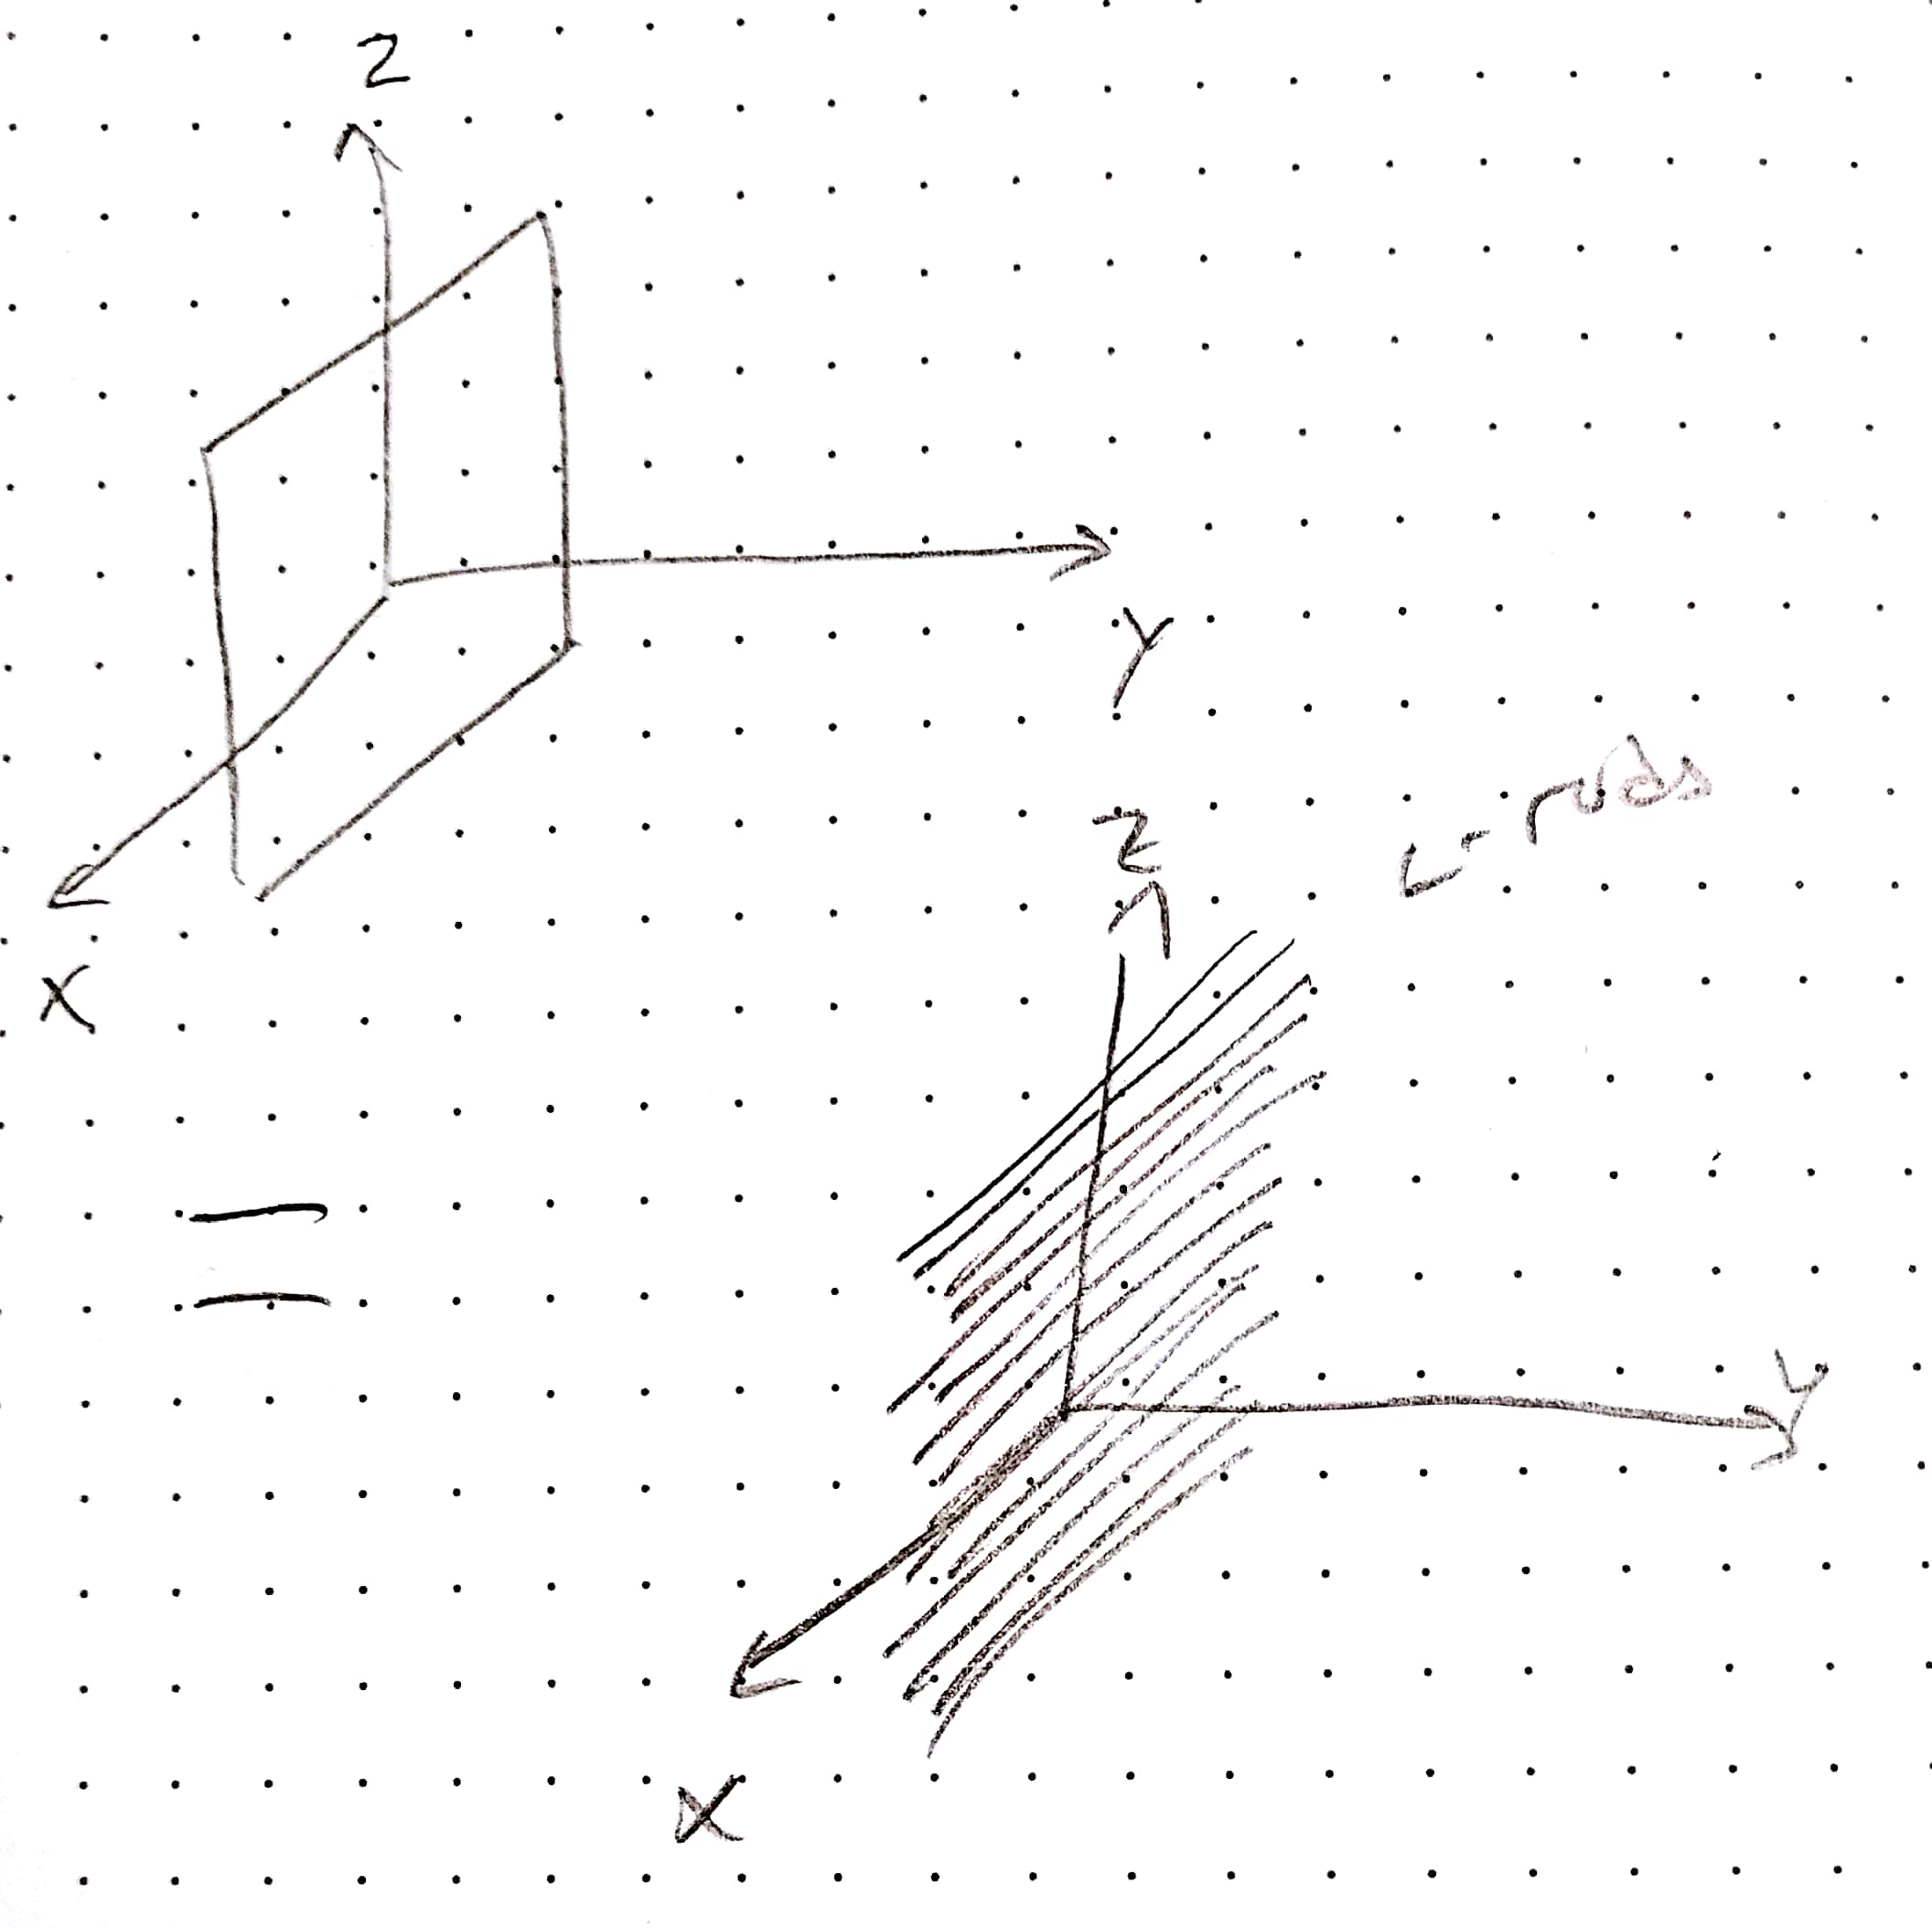 Z
Y
X
=
rods
Z
Y
X